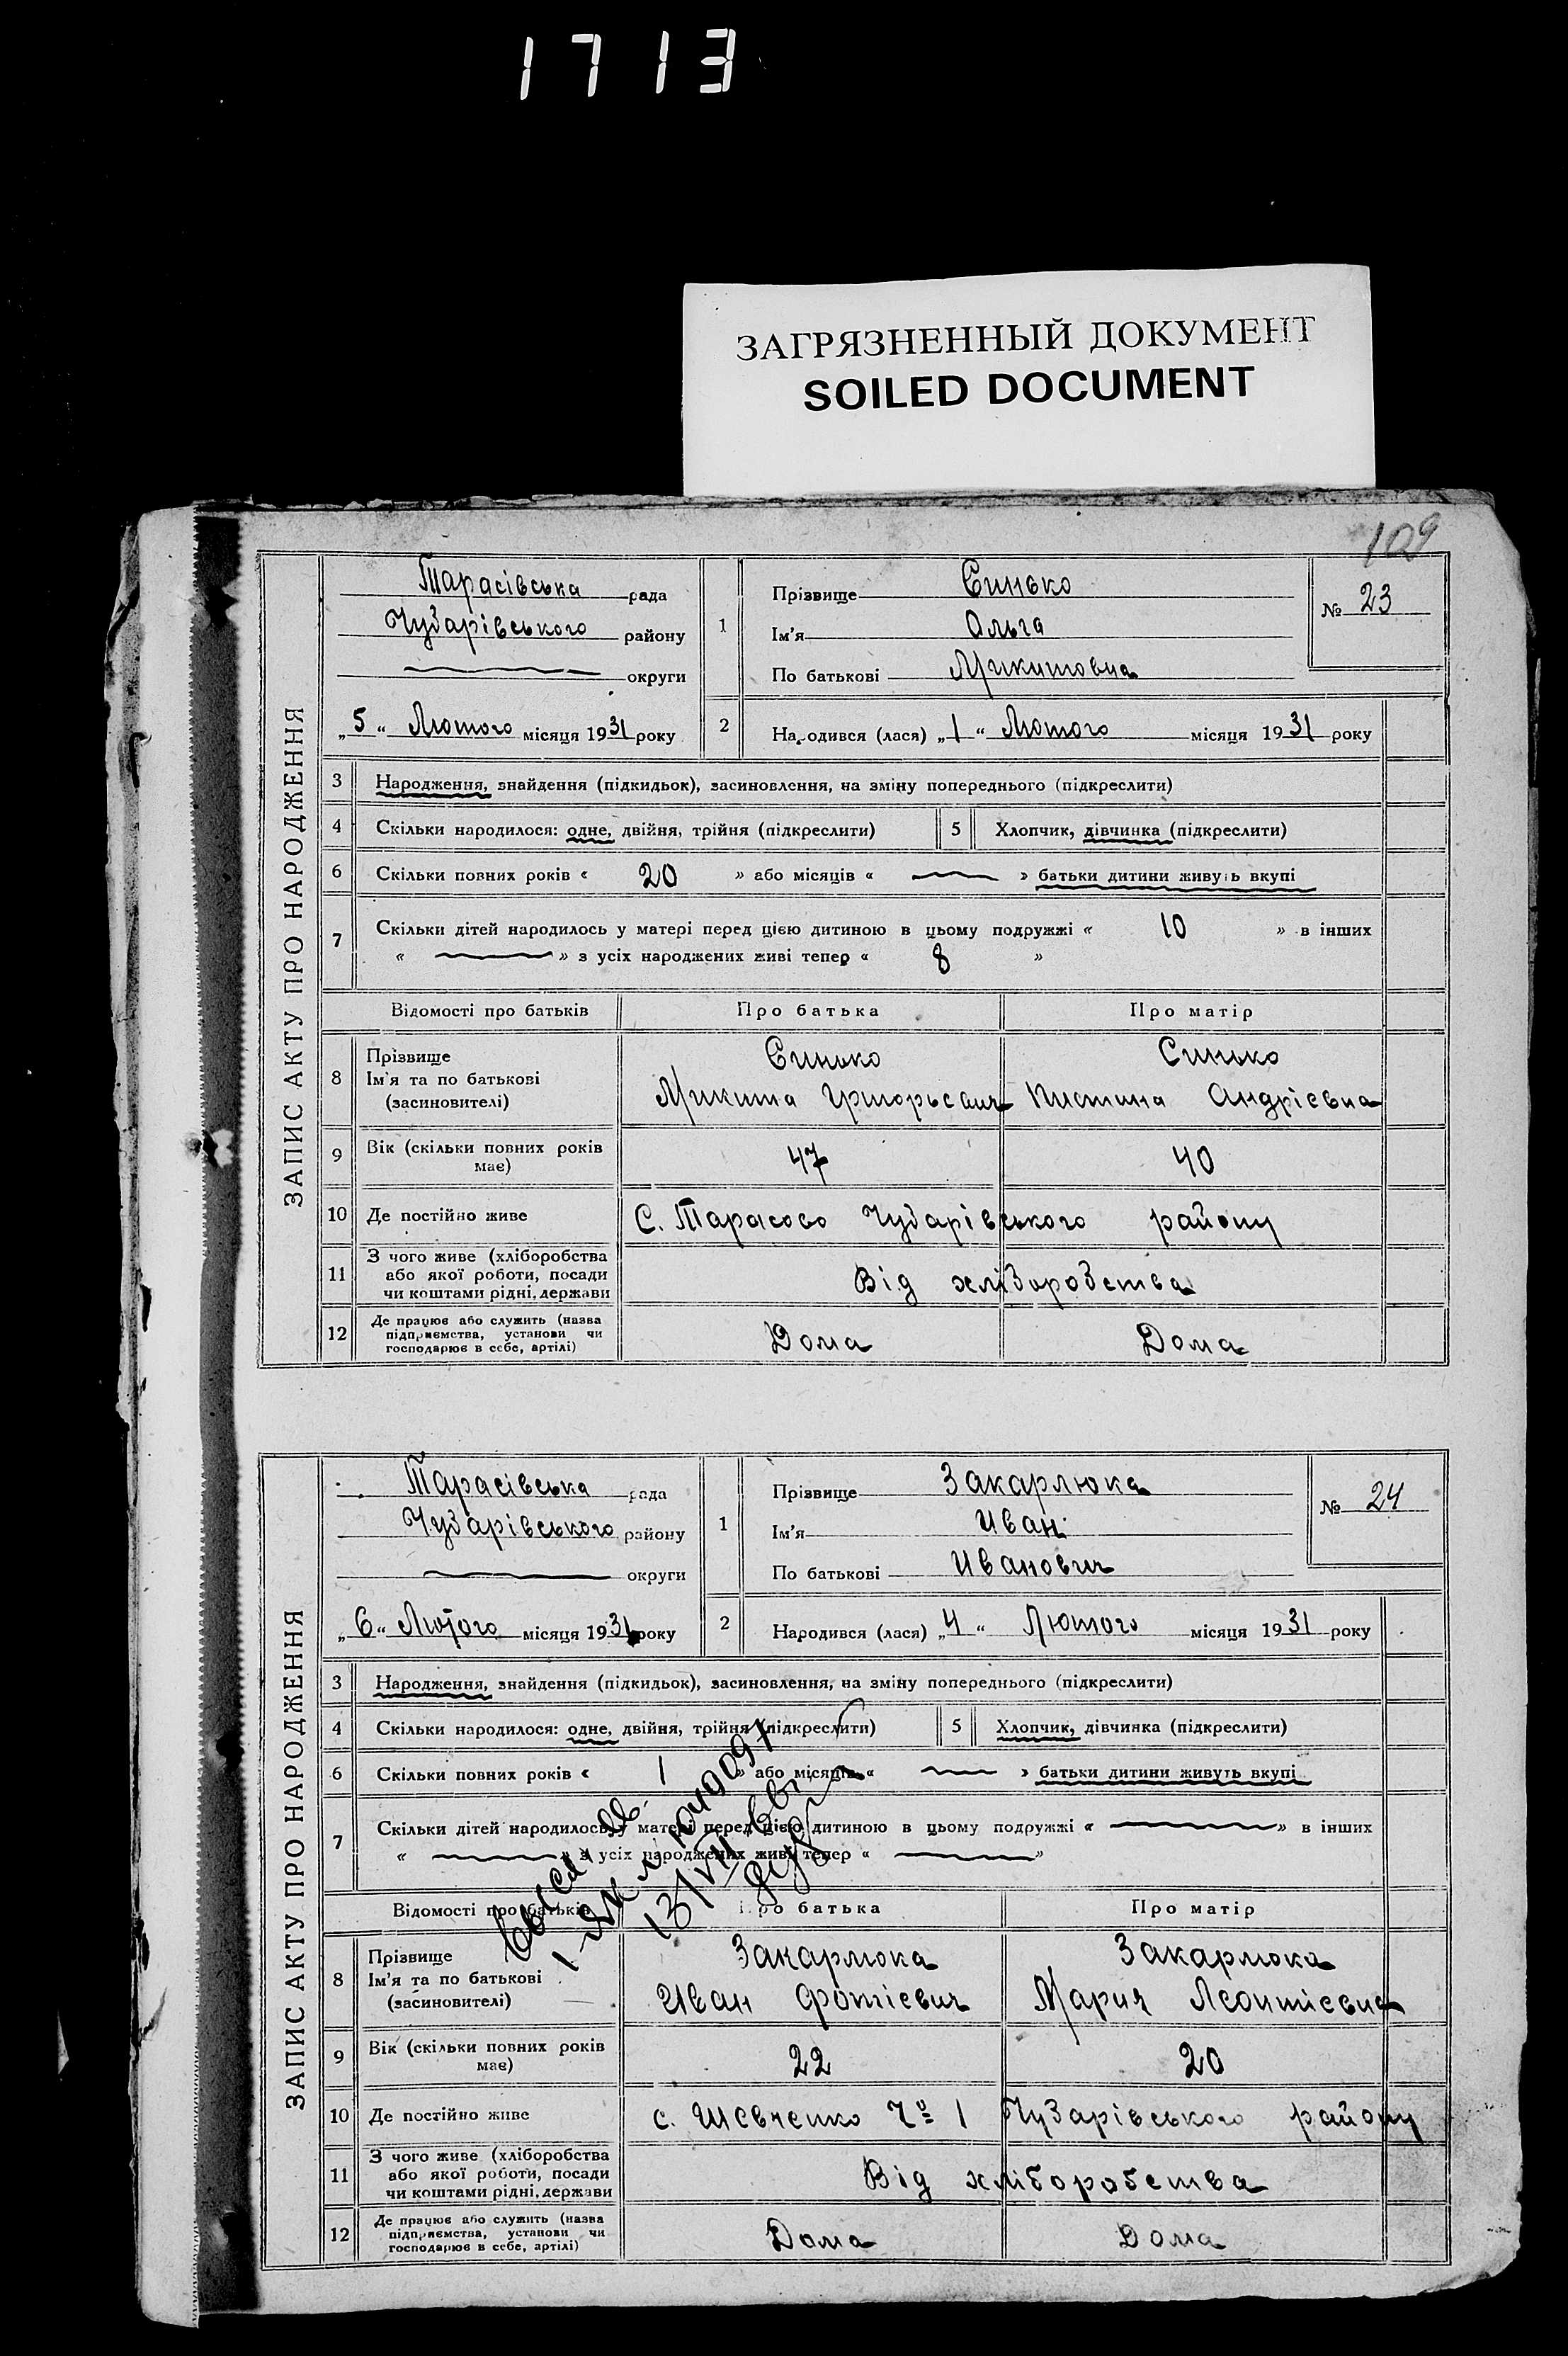 1713
ЗАГРЯЗНЕННЫЙ ДОКУМЕНТ
SOILED DOCUMENT
109
ЗАПИС АКТУ ПРО НАРОДЖЕННЯ
Тарасівська рада
Чубарівського району
округи
„5“ Лютого місяця 1931 року
1
Прізвище Синько
Ім'я Ольга
По батькові Микитовна
№ 23
2 Народився (лася) „1“ Лютого місяця 1931 року
3 Народження, знайдення (підкидьок), засиновлення, на зміну попереднього (підкреслити)
4 Скільки народилося: одне, двійня, трійня (підкреслити) 5 Хлопчик, дівчинка (підкреслити)
6 Скільки повних років « 20 » або місяців « » батьки дитини живуть вкупі
7 Скільки дітей народилось у матері перед цією дитиною в цьому подружжі « 10 » в інших
« » з усіх народжених живі тепер « 8 »
Відомості про батьків Про батька Про матір
8 Прізвище Синько Синько
Ім'я та по батькові Микита Григорьевич Христина Андріевна
(засиновителі)
9 Вік (скільки повних років має) 47 40
10 Де постійно живе С. Тарасово Чубарівського району
11 З чого живе (хліборобства
або якої роботи, посади Від хліборобства
чи коштами рідні, держави
12 Де працює або служить (назва
підприємства, установи чи Дома Дома
господарює в себе, артілі)
ЗАПИС АКТУ ПРО НАРОДЖЕННЯ
Тарасівська рада
Чубарівського району
округи
„6“ Лютого місяця 1931 року
1
Прізвище Закарлюка
Ім'я Иван
По батькові Иванович
№ 24
2 Народився (лася) „4“ Лютого місяця 1931 року
3 Народження, знайдення (підкидьок), засиновлення, на зміну попереднього (підкреслити)
4 Скільки народилося: одне, двійня, трійня (підкреслити) 5 Хлопчик, дівчинка (підкреслити)
6 Скільки повних років « 1 » або місяців « » батьки дитини живуть вкупі
7 Скільки дітей народилось у матері перед цією дитиною в цьому подружжі « » в інших
« » з усіх народжених живі тепер « »
Відомості про батьків Про батька Про матір
8 Прізвище Закарлюка Закарлюка
Ім'я та по батькові Иван Фотіевич Мария Леонтіевна
(засиновителі)
9 Вік (скільки повних років має) 22 20
10 Де постійно живе с. Шевченко 1 Чубарівського району
11 З чого живе (хліборобства
або якої роботи, посади Від хліборобства
чи коштами рідні, держави
12 Де працює або служить (назва
підприємства, установи чи Дома Дома
господарює в себе, артілі)